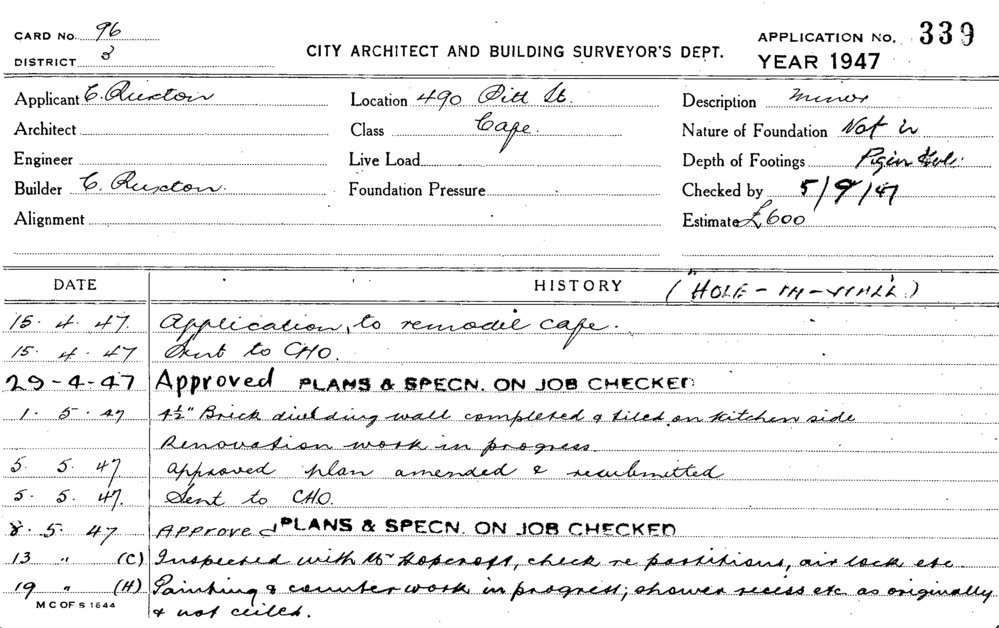 CARD No. 96
DISTRICT 3
CITY ARCHITECT AND BUILDING SURVEYOR'S DEPT.
APPLICATION No. 339
YEAR 1947
Applicant C. Ruxton
Location 490 Pitt St.
Description Minor
Architect
Class Cafe.
Nature of Foundation Not in
Engineer
Live Load
Depth of Footings Pigin Hole.
Builder C. Ruxton.
Foundation Pressure
Checked by 5/9/47
Alignment
Estimate £600
DATE HISTORY (HOLE-IN-WALL)
15. 4. 47. Application, to remodel cafe.
15. 4. 47 Sent to CHO.
29-4-47 Approved PLANS & SPECN. ON JOB CHECKED
1. 5. 47 4½" Brick dividing wall completed & tiled on kitchen side
Renovation work in progress.
5. 5. 47 Approved plan amended & resubmitted
5. 5. 47. Sent to CHO.
8. 5. 47 Approved PLANS & SPECN. ON JOB CHECKED
13 " (C) Inspected with Mr Hopcroft, check re partitions, air lock etc.
19 " (H) Painting & counter work in progress; shower recess etc as originally
& not ceiled.
M C OF S 1644